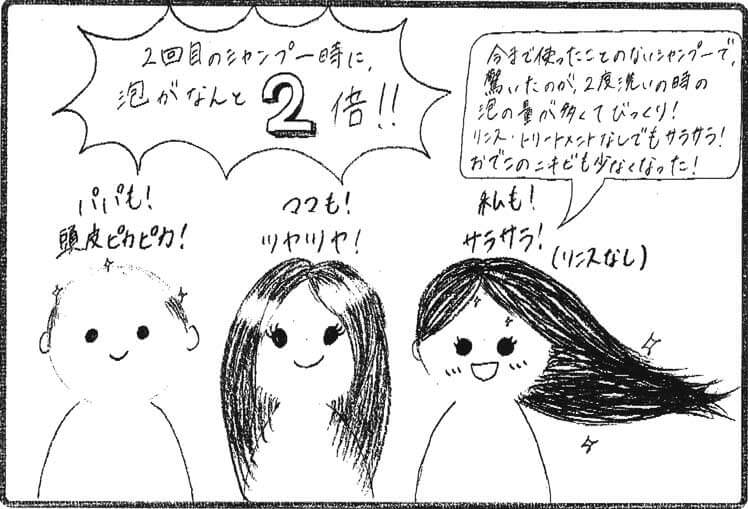 2回目のシャンプー時に、
泡がなんと 2 倍!!
今まで使ったことのないシャンプーで、
驚いたのが、2度洗いの時の
泡の量が多くてびっくり!
リンス・トリートメントなしでもサラサラ!
おでこのニキビも少なくなった!
パパも!
頭皮ピカピカ!
ママも!
ツヤツヤ!
私も!
サラサラ!
(リンスなし)